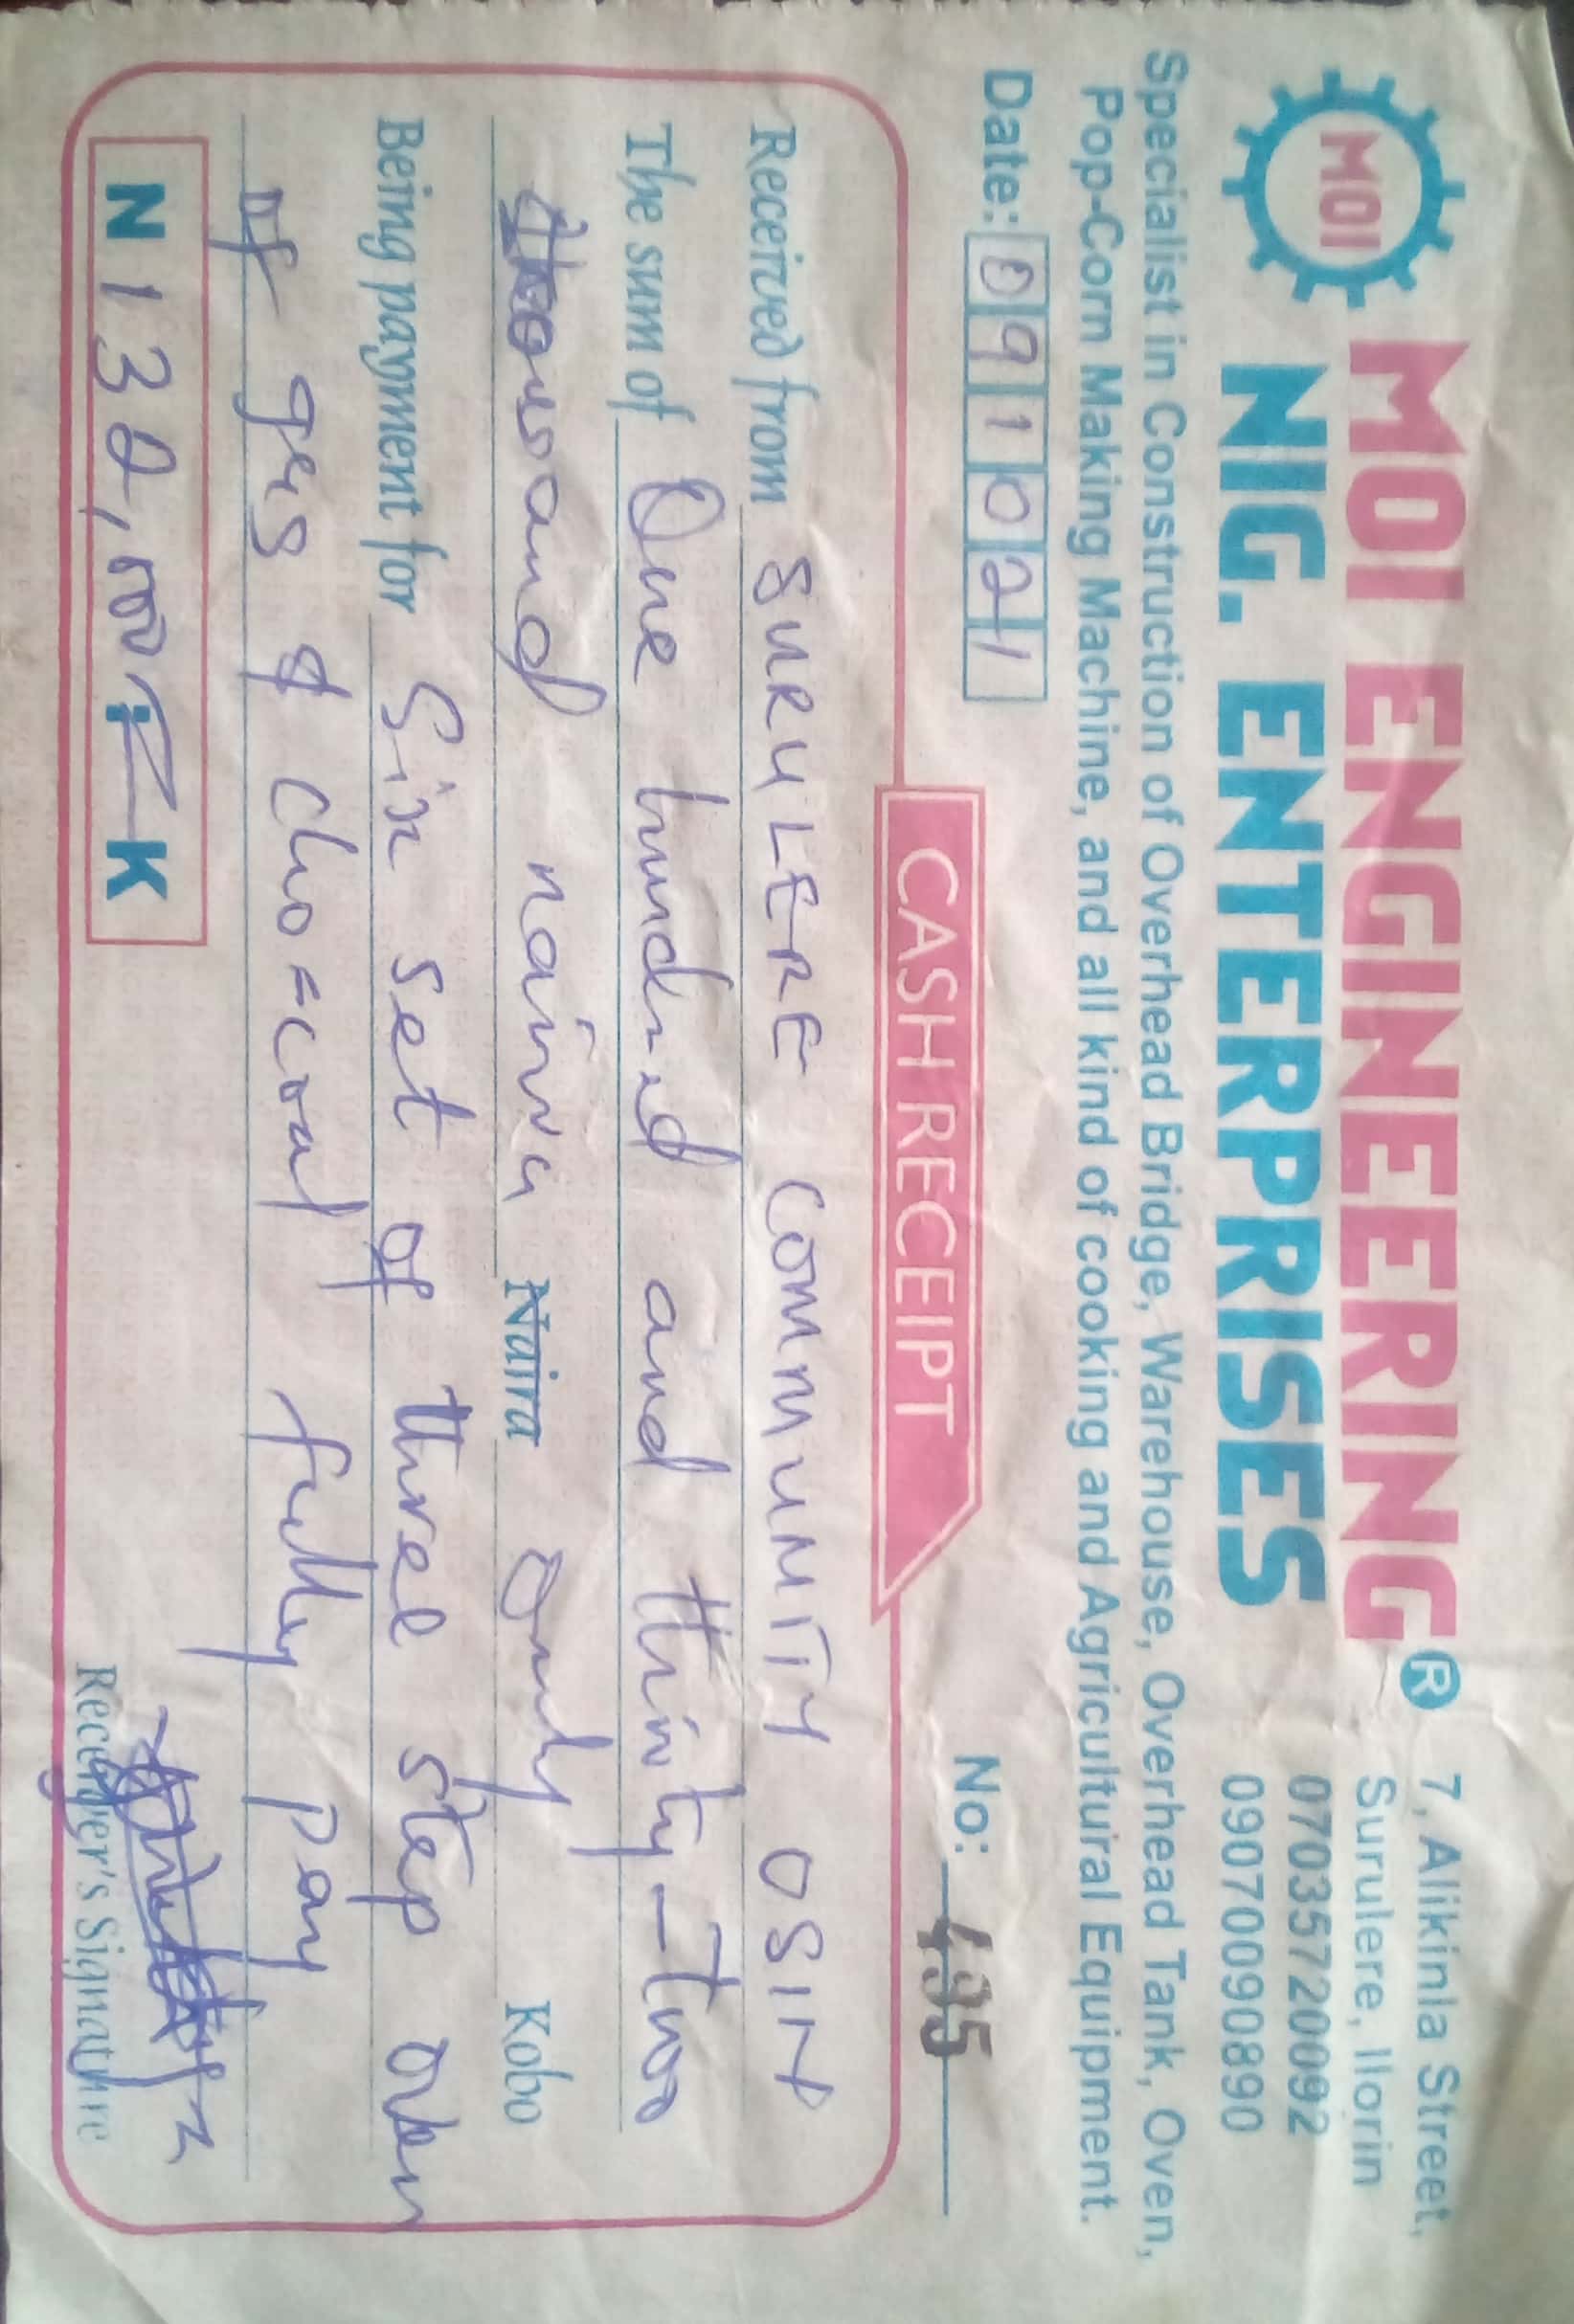 MOI
MOI ENGINEERING ®
NIG. ENTERPRISES
7, Alikinla Street,
Surulere, Ilorin
07035720092
09070090890
Specialist in Construction of Overhead Bridge, Warehouse, Overhead Tank, Oven,
Pop-Corn Making Machine, and all kind of cooking and Agricultural Equipment.
Date: 09 10 21
No: 495
CASH RECEIPT
Received from SURULERE COMMUNITY OSIN
The sum of One hundred and thirty-two
thousand naira Naira only Kobo
Being payment for Six set of three step oven
of gas & cho=coal fully pay
N 132,000 K
Receiver's Signature